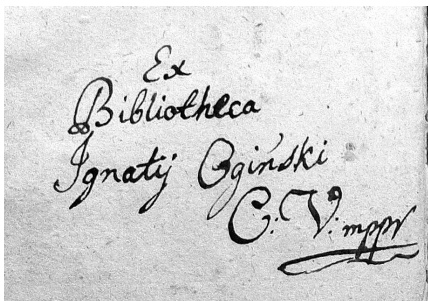 Ex
Bibliotheca
Ignatij Ogiński
C: V: mppr